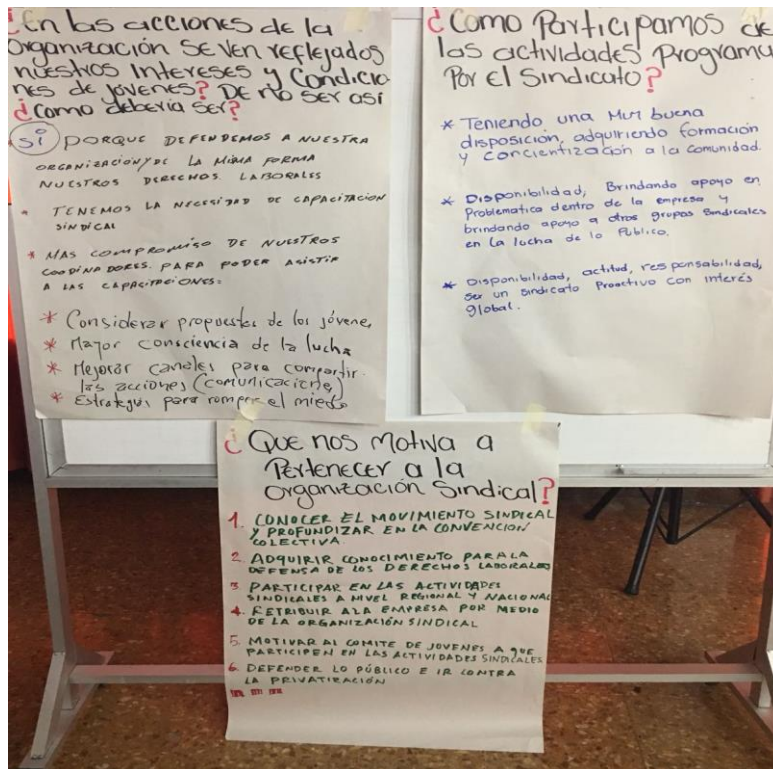 ¿En las acciones de la
Organización se ven reflejados
nuestros Intereses y Condicio
nes de jovenes? De no ser así
¿como debería ser?
Si PORQUE DEFENDEMOS A NUESTRA
ORGANIZACIÓN Y DE LA MISMA FORMA
NUESTROS DERECHOS LABORALES
TENEMOS LA NECESIDAD DE CAPACITACION
SINDICAL
* MAS COMPROMISO DE NUESTROS
COODINADORES. PARA PODER ASISTIR
A LAS CAPACITACIONES.
* Considerar propuestas de los jóvene,
* Mayor consciencia de la lucha
* Mejorar canales para compartir
las acciones (comunicacione)
* Estrategias para romper el miedo
¿Como Participamos de
las actividades Programa
Por El Sindicato?
* Teniendo una Muy buena
disposición, adquiriendo formación
y concientización a la Comunidad.
* Disponibilidad, Brindando apoyo en
Problematica dentro de la empresa y
brindando apoyo a otros grupos Sindicales
en la lucha de lo Publico.
* Disponibilidad, actitud, responsabilidad,
ser un sindicato Proactivo con interés
global.
¿Que nos Motiva a
Pertenecer a la
Organización Sindical?
1. CONOCER EL MOVIMIENTO SINDICAL
Y PROFUNDIZAR EN LA CONVENCION
COLECTIVA
2. ADQUIRIR CONOCIMIENTO PARA LA
DEFENSA DE LOS DERECHOS LABORALES
3 PARTICIPAR EN LAS ACTIVIDADES
SINDICALES A NIVEL REGIONAL Y NACIONAL
4. RETRIBUIR A LA EMPRESA POR MEDIO
DE LA ORGANIZACIÓN SINDICAL
5. MOTIVAR AL COMITE DE JOVENES A QUE
PARTICIPEN EN LAS ACTIVIDADES SINDICALES
6. DEFENDER LO PÚBLICO E IR CONTRA
LA PRIVATIZACIÓN